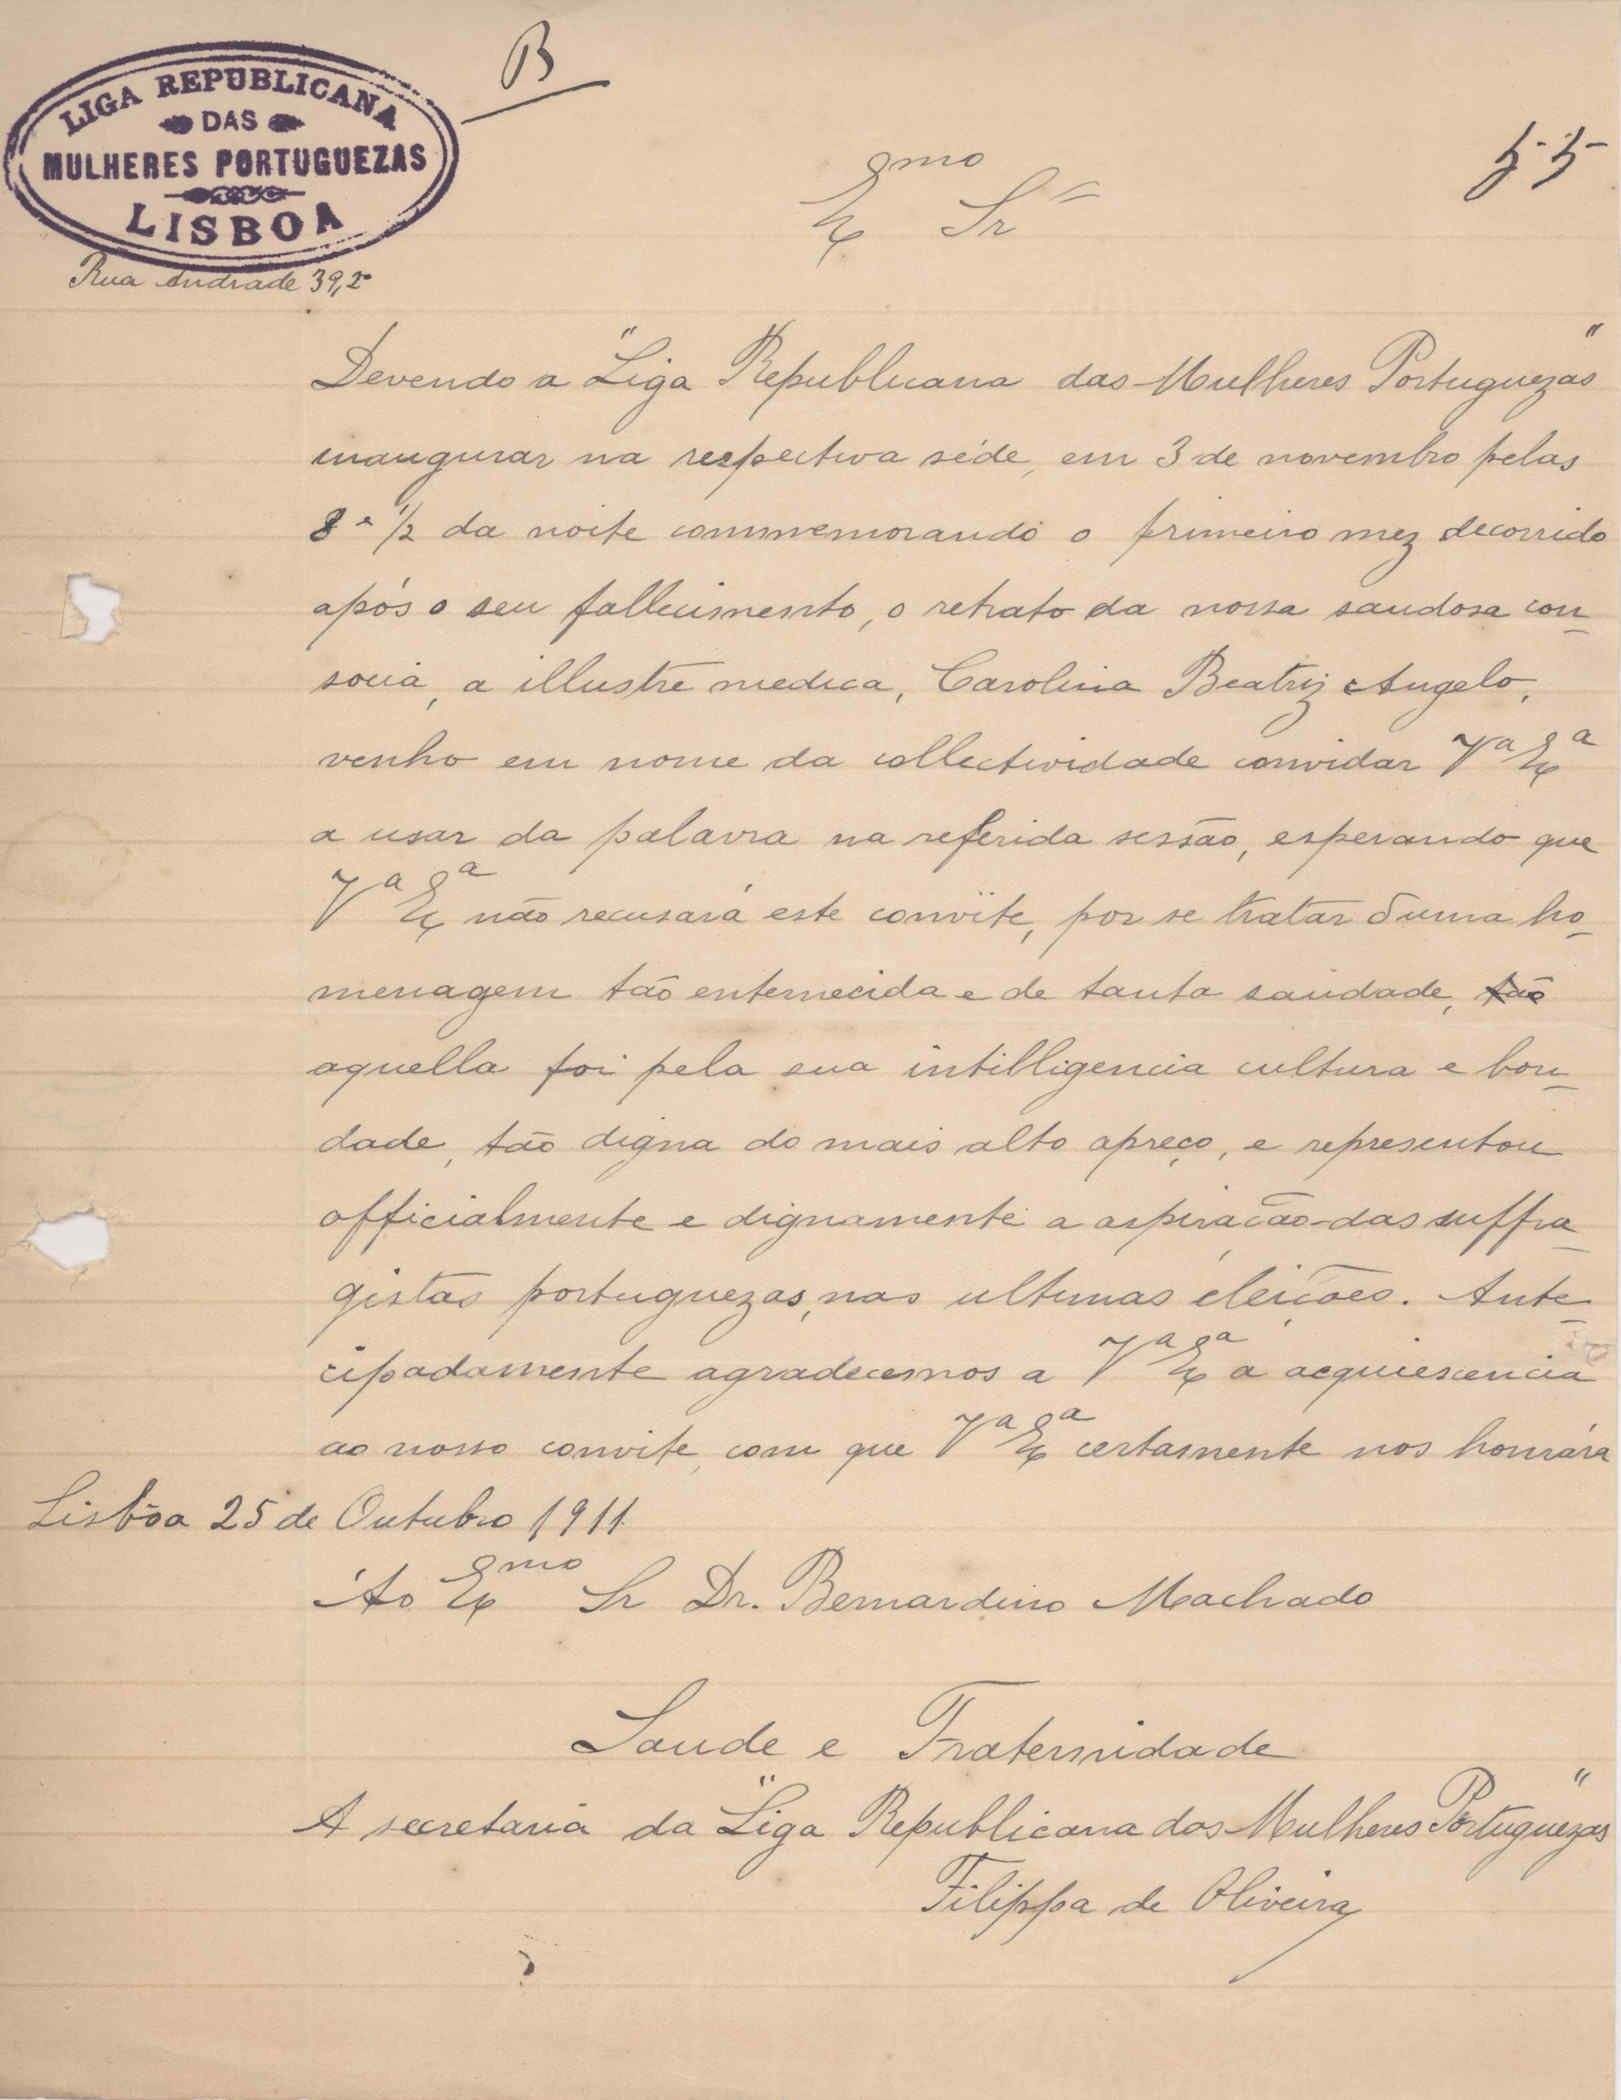 B
LIGA REPUBLICANA
DAS
MULHERES PORTUGUEZAS
LISBOA
Rua Andrade 39, 2º
55
Exmo Sr
Devendo a "Liga Republicana das Mulheres Portuguezas"
inaugurar na respectiva séde, em 3 de novembro pelas
8 e 1/2 da noite commemorando o primeiro mez decorrido
após o seu fallecimento, o retrato da nossa saudosa con-
socia, a illustre medica, Carolina Beatriz Angelo,
venho em nome da collectividade convidar Va Exa
a usar da palavra na referida sessão, esperando que
Va Exa não recusará este convite, por se tratar duma ho-
menagem tão enternecida e de tanta saudade, tão
aquella foi pela sua intilligencia cultura e bon-
dade, tão digna do mais alto apreço, e representou
officialmente e dignamente a aspiração das suffra-
gistas portuguezas, nas ultimas eleições. Ante-
cipadamente agradecemos a Va Exa a acquiescencia
ao nosso convite, com que Va Exa certamente nos honrára
Lisbôa 25 de Outubro 1911
Ao Exmo Sr Dr. Bernardino Machado
Saude e Fraternidade
A secretaria da "Liga Republicana das Mulheres Portuguezas"
Filippa de Oliveira